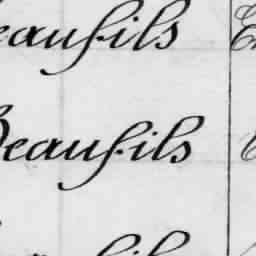 Beaufils
Beaufils